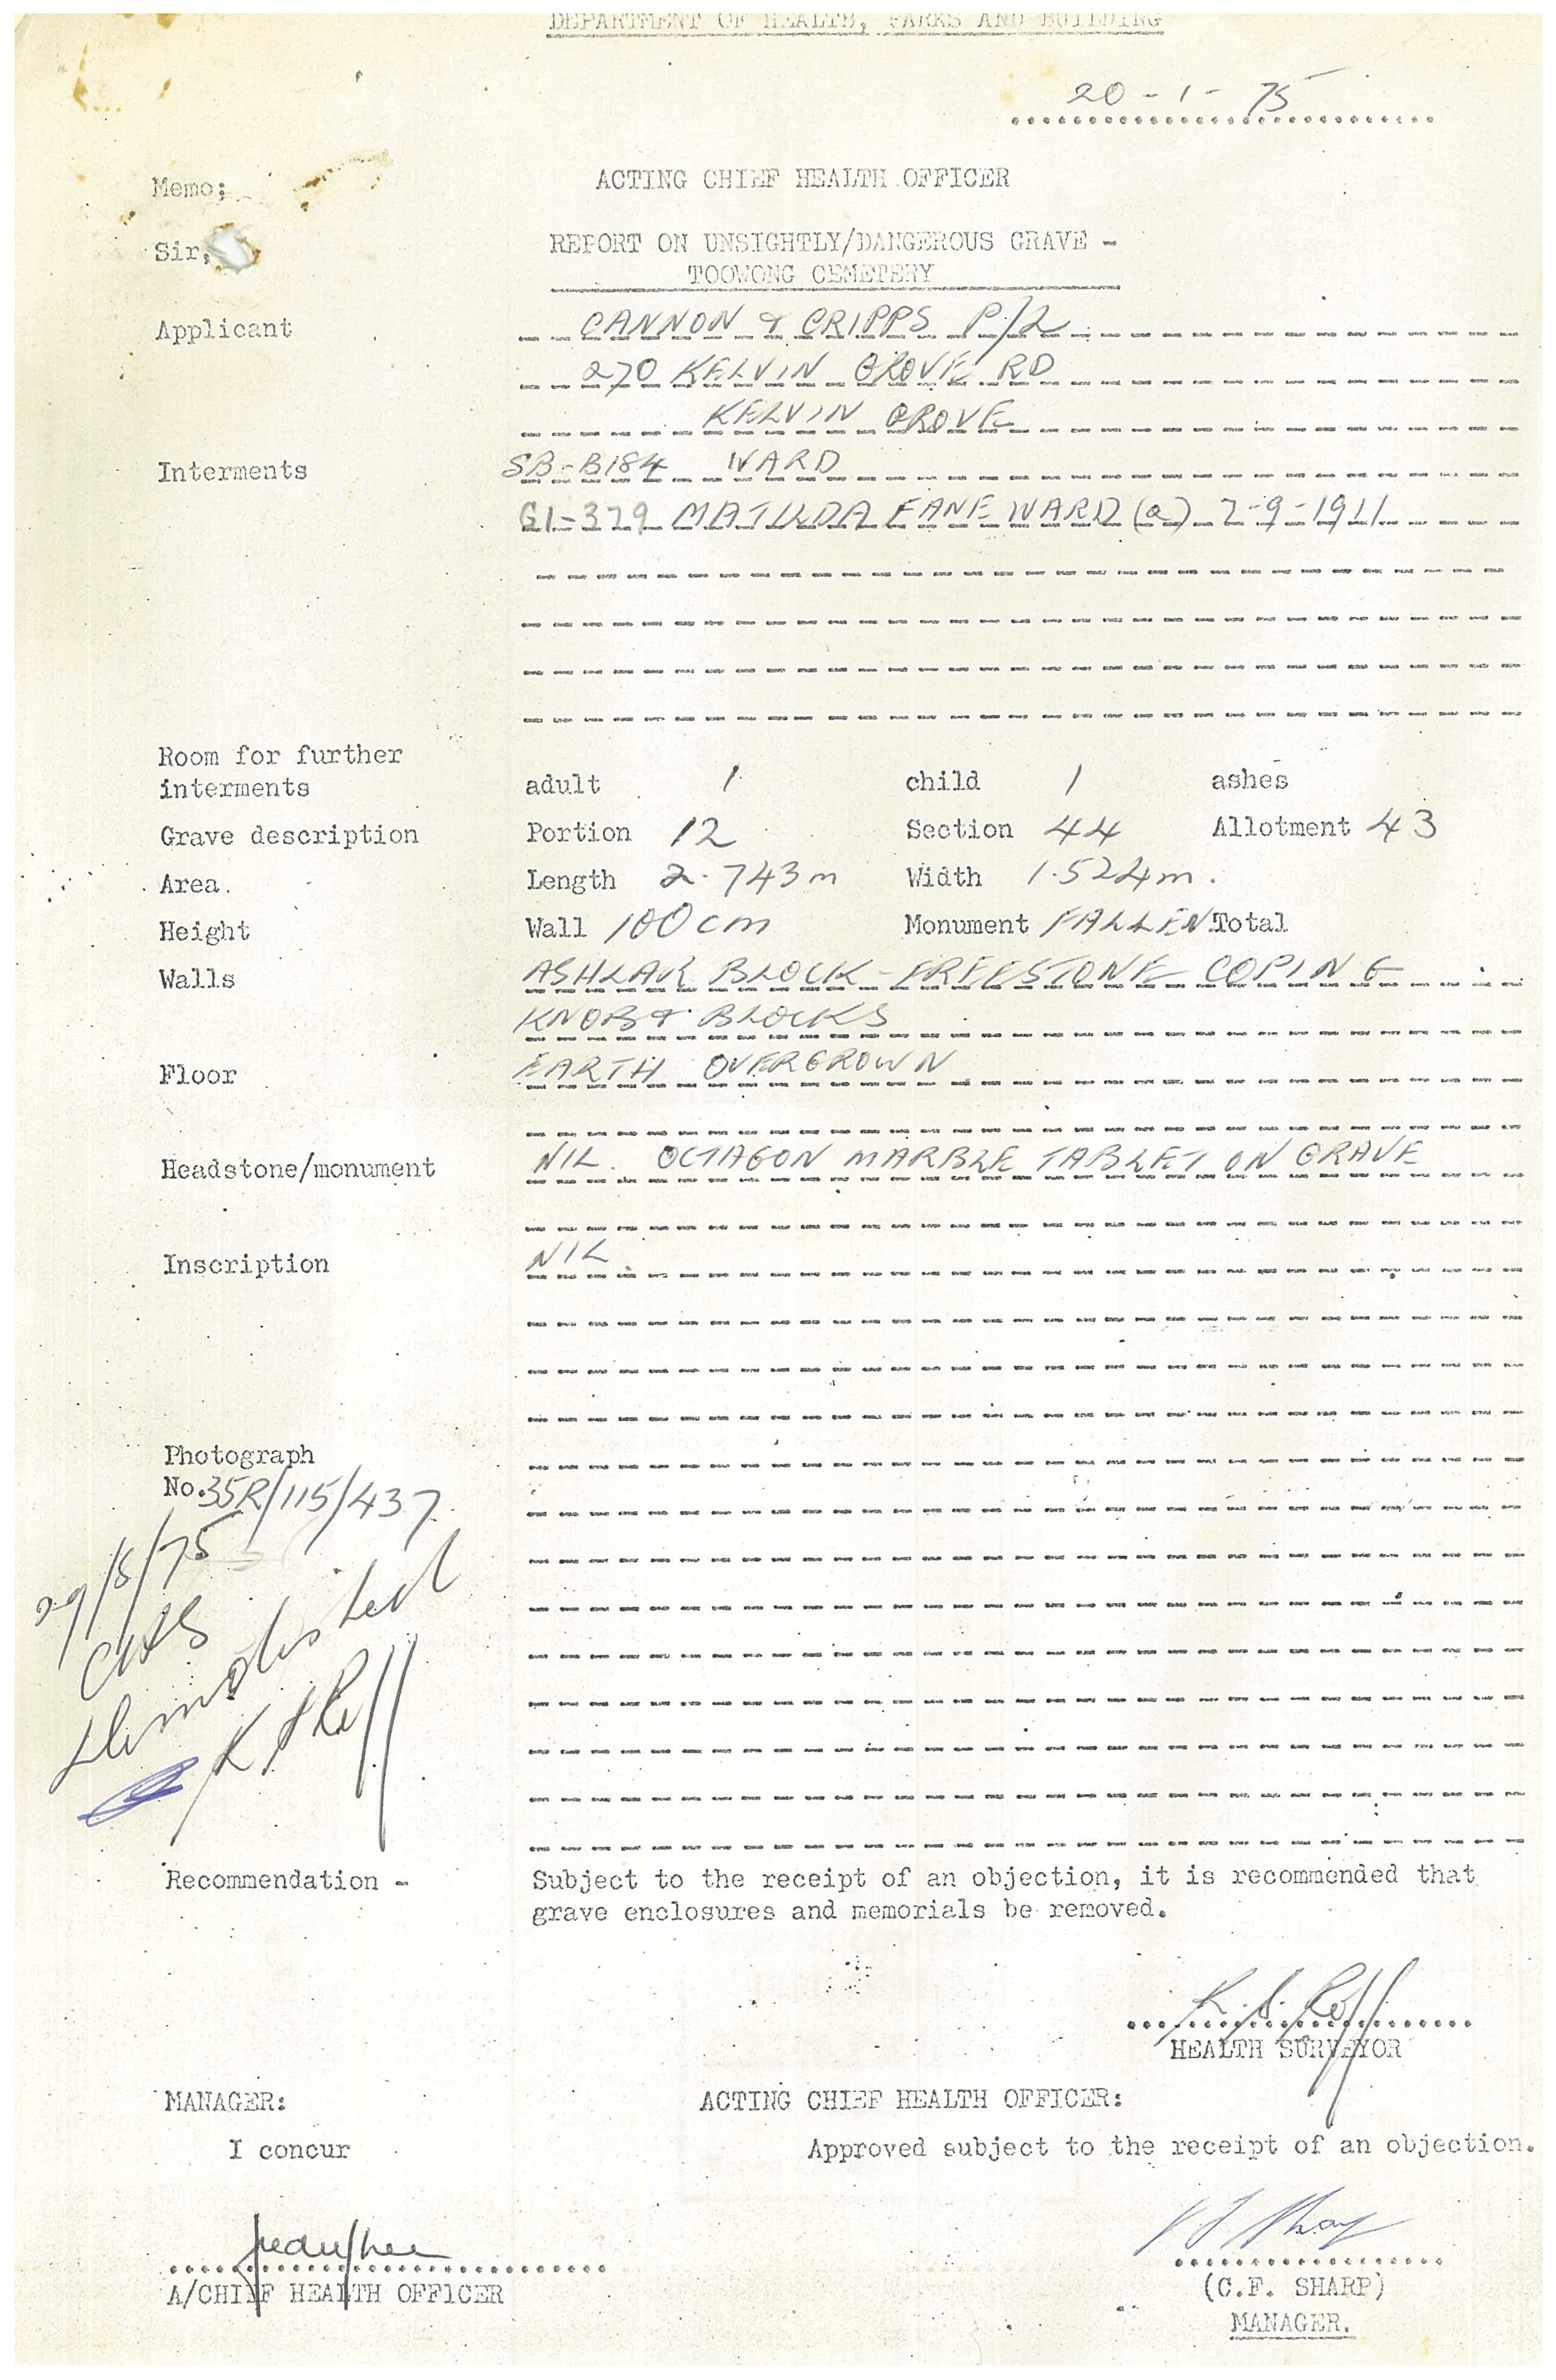 DEPARTMENT OF HEALTH, PARKS AND BUILDING
20 - 1 - 75
Memo; ACTING CHIEF HEALTH OFFICER
Sir, REPORT ON UNSIGHTLY/DANGEROUS GRAVE -
TOOWONG CEMETERY
Applicant CANNON & CRIPPS P/L
270 KELVIN GROVE RD
KELVIN GROVE
Interments SB-B184 WARD
G1-379 MATILDA JANE WARD (a) 7-9-1911
Room for further
interments adult 1 child 1 ashes
Grave description Portion 12 Section 44 Allotment 43
Area. Length 2.743m Width 1.524m.
Height Wall 100cm Monument FALLEN Total
Walls ASHLAR BLOCK - FREESTONE COPING
KNOB & BLOCKS
Floor EARTH OVERGROWN
Headstone/monument NIL. OCTAGON MARBLE TABLET ON GRAVE
Inscription NIL.
Photograph
No.35R/115/437.
29/8/75
demolished
Recommendation - Subject to the receipt of an objection, it is recommended that
grave enclosures and memorials be removed.
HEALTH SURVEYOR
MANAGER: ACTING CHIEF HEALTH OFFICER:
I concur Approved subject to the receipt of an objection.
A/CHIEF HEALTH OFFICER (C.F. SHARP)
MANAGER.